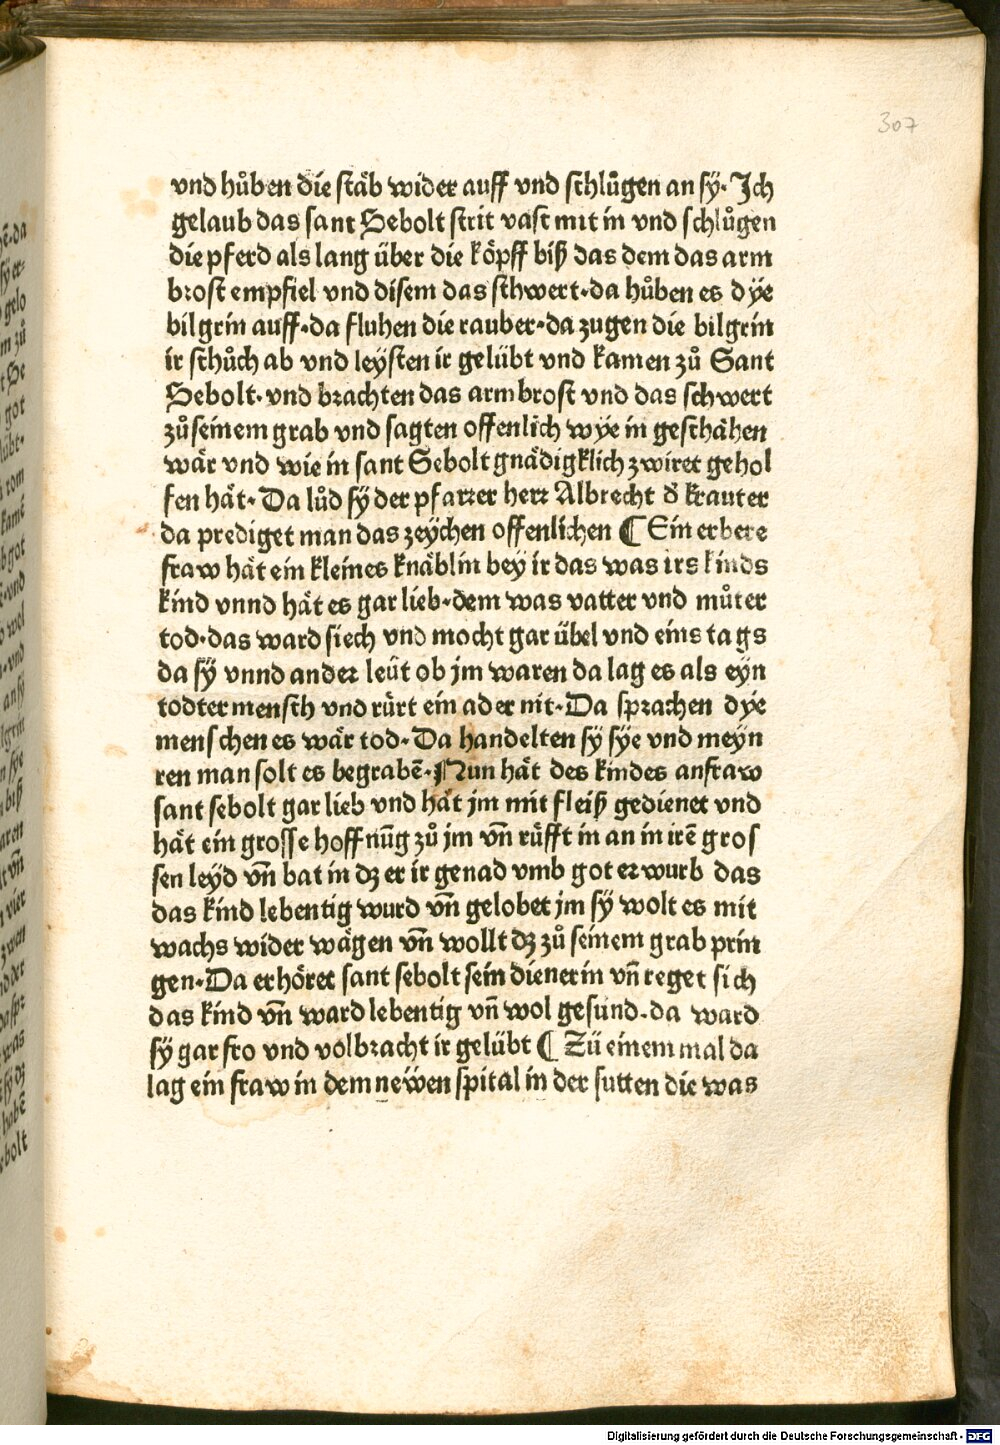 307
vnd hůben die stäb wider auff vnd schlůgen an sÿ. Jch
gelaub das sant Sebolt strit vast mit in vnd schlůgen
die pferd als lang über die köpff biß das dem das arm
brost empfiel vnd disem das schwert. da hůben es dÿe
bilgrin auff. da fluhen die rauber. da zugen die bilgrin
ir schůch ab vnd leÿsten ir gelübt vnd kamen zů Sant
Sebolt. vnd brachten das armbrost vnd das schwert
zů seinem grab vnd sagten offenlich wÿe in geschähen
wär vnd wie in sant Sebolt gnädigklich zwiret gehol
fen hät. Da lůd sÿ der pfarrer herr Albrecht d̕ krauter
da prediget man das zeÿchen offenlichen ¶ Ein erbere
fraw hät ein kleines knäblin bey ir das was irs kinds
kind vnnd hät es gar lieb. dem was vatter vnd můter
tod. das ward siech vnd mocht gar übel vnd eins tags
da sÿ vnnd ander leüt ob jm waren da lag es als eyn
todter mensch vnd rürt ein ader nit. Da sprachen dÿe
menschen es wär tod. Da handelten sÿ sÿe vnd meÿn
ren man solt es begrabē. Nun hät des kindes anfraw
sant sebolt gar lieb vnd hät jm mit fleiß gedienet vnd
hät ein grosse hoffnūg zů jm vn̄ rüfft in an in irē gros
sen leÿd vn̄ bat in dz er ir genad vmb got erwurb das
das kind lebentig wurd vn̄ gelobet jm sÿ wolt es mit
wachs wider wägen vn̄ wollt dz zů seinem grab prin
gen. Da erhöret sant sebolt sein dienerin vn̄ reget sich
das kind vn̄ ward lebentig vn̄ wol gesund. da ward
sÿ gar fro vnd volbracht ir gelübt ¶ Zü einem mal da
lag ein fraw in dem newen spital in der sutten die was
Digitalisierung gefördert durch die Deutsche Forschungsgemeinschaft - DFG